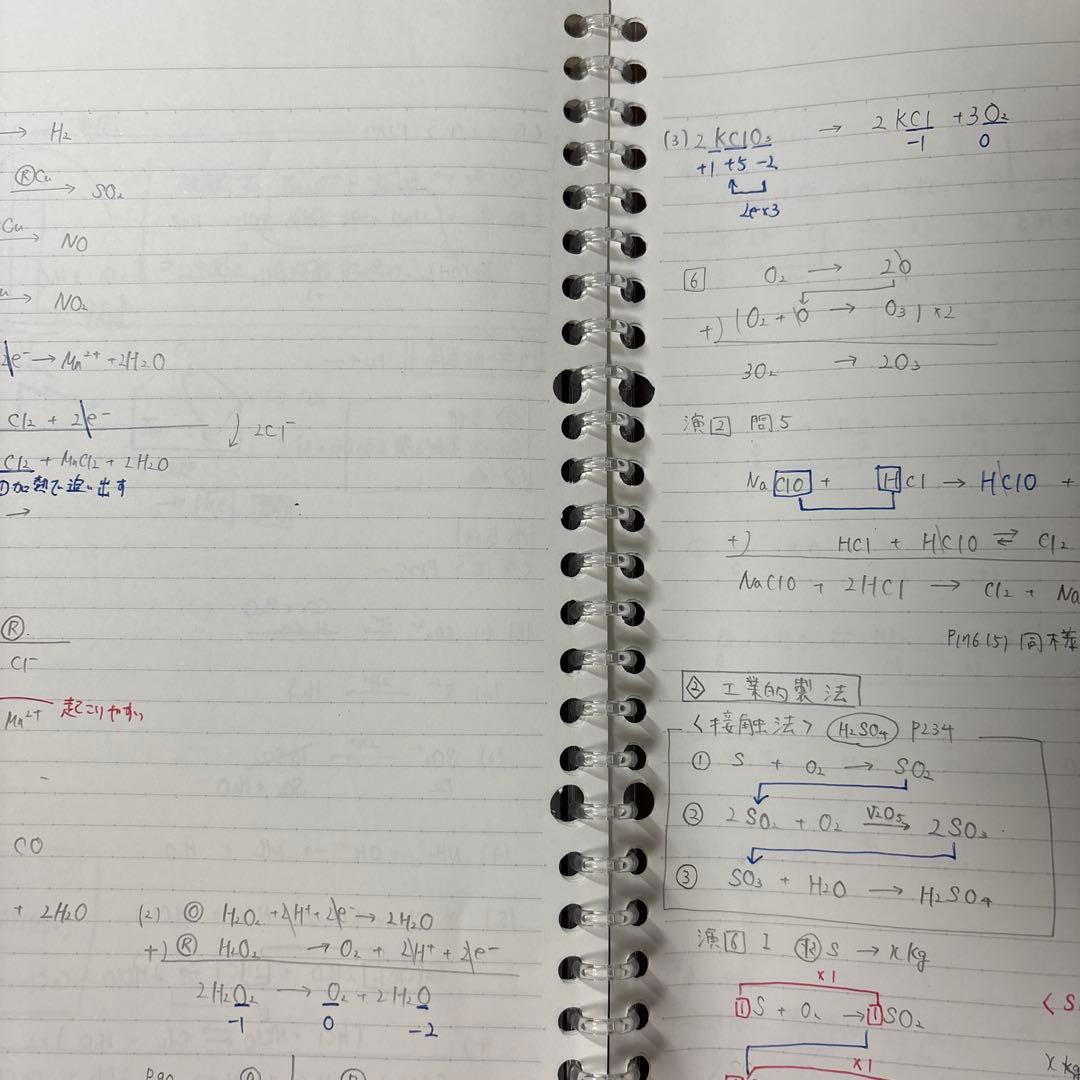 → H₂
ⓇCu → SO₂
Cu → NO
→ NO₂
2e⁻ → Mn²⁺ + 2H₂O
Cl₂ + 2e⁻
2Cl⁻
Cl₂ + MnCl₂ + 2H₂O
①加熱で追い出す
→
Ⓡ
Cl⁻
Mn²⁺ 起こりやすい
CO
+ 2H₂O
(2) Ⓞ H₂O₂ + 2H⁺ + 2e⁻ → 2H₂O
+) Ⓡ H₂O₂ → O₂ + 2H⁺ + 2e⁻
2H₂O₂ → O₂ + 2H₂O
-1 0 -2
(3) 2KClO₃ → 2KCl + 3O₂
+1 +5 -2 -1 0
2e⁻×3
6 O₂ → 2O
+) (O₂ + O → O₃) ×2
3O₂ → 2O₃
演2 問5
NaClO + HCl → HClO +
+) HCl + HClO ⇄ Cl₂
NaClO + 2HCl → Cl₂ + Na
P176(5) 同様
② 工業的製法
〈接触法〉 H₂SO₄ P234
① S + O₂ → SO₂
② 2SO₂ + O₂ V₂O₅→ 2SO₃
③ SO₃ + H₂O → H₂SO₄
S → x kg
×1
1S + O₂ → 1SO₂
〈S
x kg
×1